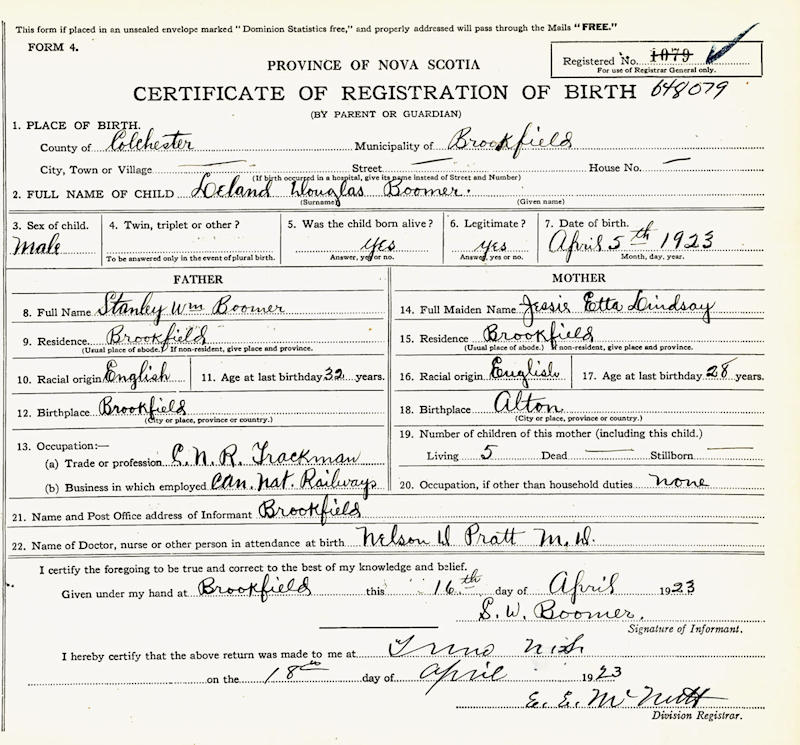 This form if placed in an unsealed envelope marked "Dominion Statistics free," and properly addressed will pass through the Mails "FREE."
FORM 4.
Registered No. 1079
For use of Registrar General only.
PROVINCE OF NOVA SCOTIA
CERTIFICATE OF REGISTRATION OF BIRTH 648079
(BY PARENT OR GUARDIAN)
1. PLACE OF BIRTH.
County of Colchester Municipality of Brookfield
City, Town or Village — Street — House No. —
(If birth occurred in a hospital, give its name instead of Street and Number)
2. FULL NAME OF CHILD Leland Douglas Boomer.
(Surname) (Given name)
3. Sex of child. 4. Twin, triplet or other? 5. Was the child born alive? 6. Legitimate? 7. Date of birth.
Male yes yes April 5th 1923
To be answered only in the event of plural birth. Answer, yes or no. Answer, yes or no. Month, day, year.
FATHER MOTHER
8. Full Name Stanley Wm Boomer 14. Full Maiden Name Jessie Etta Lindsay
9. Residence. Brookfield 15. Residence Brookfield
(Usual place of abode.) If non-resident, give place and province. (Usual place of abode.) If non-resident, give place and province.
10. Racial origin English 11. Age at last birthday 32 years. 16. Racial origin English 17. Age at last birthday 28 years.
12. Birthplace Brookfield 18. Birthplace Alton
(City or place, province or country.) (City or place, province or country.)
13. Occupation:— 19. Number of children of this mother (including this child.)
(a) Trade or profession C.N.R. Trackman Living 5 Dead — Stillborn —
(b) Business in which employed Can. Nat. Railways 20. Occupation, if other than household duties none
21. Name and Post Office address of Informant Brookfield
22. Name of Doctor, nurse or other person in attendance at birth Nelson D Pratt M.D.
I certify the foregoing to be true and correct to the best of my knowledge and belief.
Given under my hand at Brookfield this 16th day of April 1923
S. W. Boomer.
Signature of Informant.
I hereby certify that the above return was made to me at Truro
on the 18th day of April 1923
E. E. McNutt
Division Registrar.